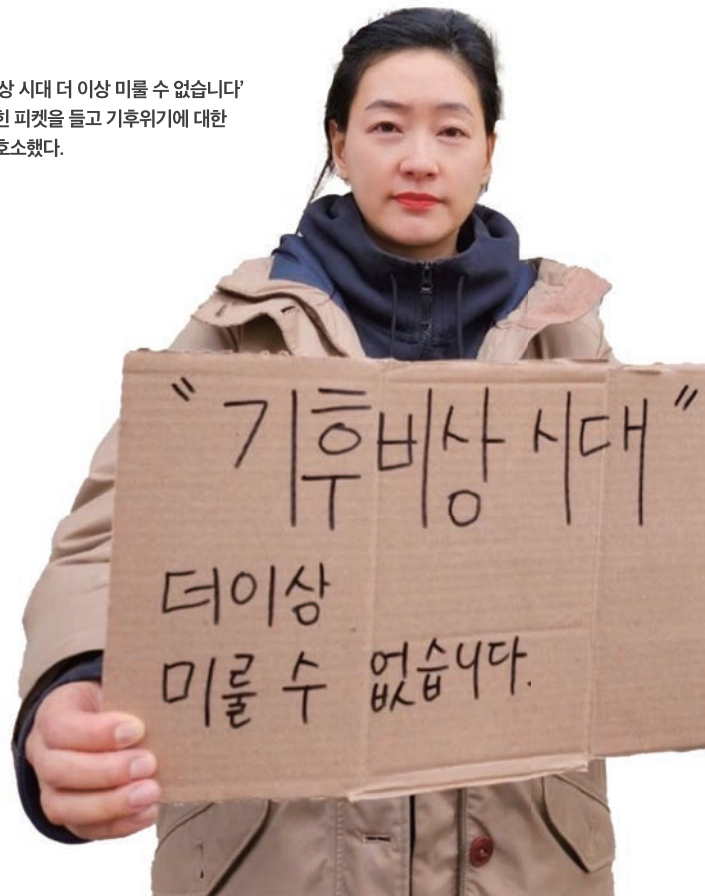 상 시대 더 이상 미룰 수 없습니다’
힌 피켓을 들고 기후위기에 대한
호소했다.
" 기후비상 시대 "
더이상
미룰 수 없습니다.